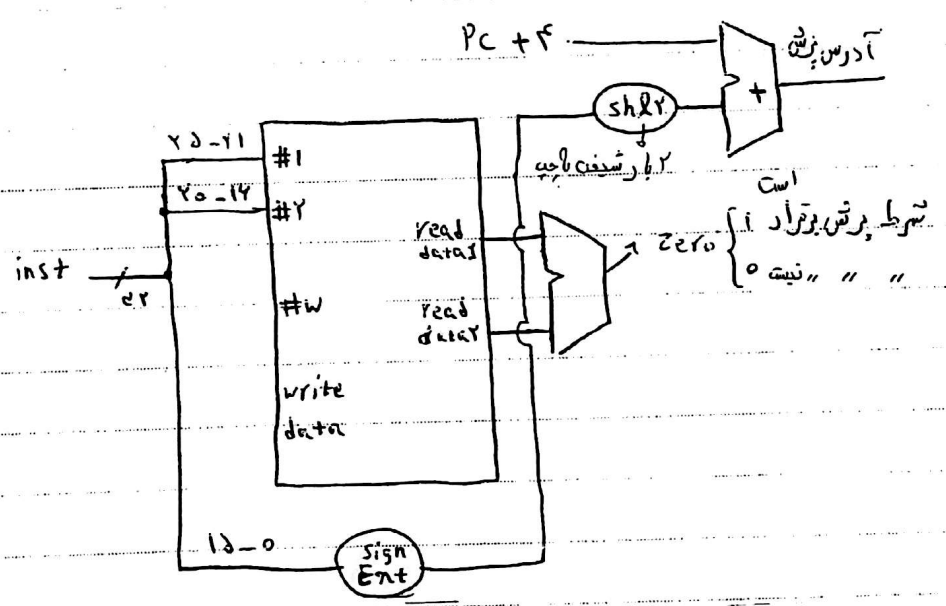 Pc + ۴
آدرس پرش
shl۲
+
۲ بار شیفت به چپ
۲۵-۲۱
#1
۲۰-۱۶
#۲
inst
۳۲
#w
write
data
read
data1
read
data۲
Zero
۱ شرط پرش برقرار است
۰ " " " نیست
۱۵-۰
sign
Ext